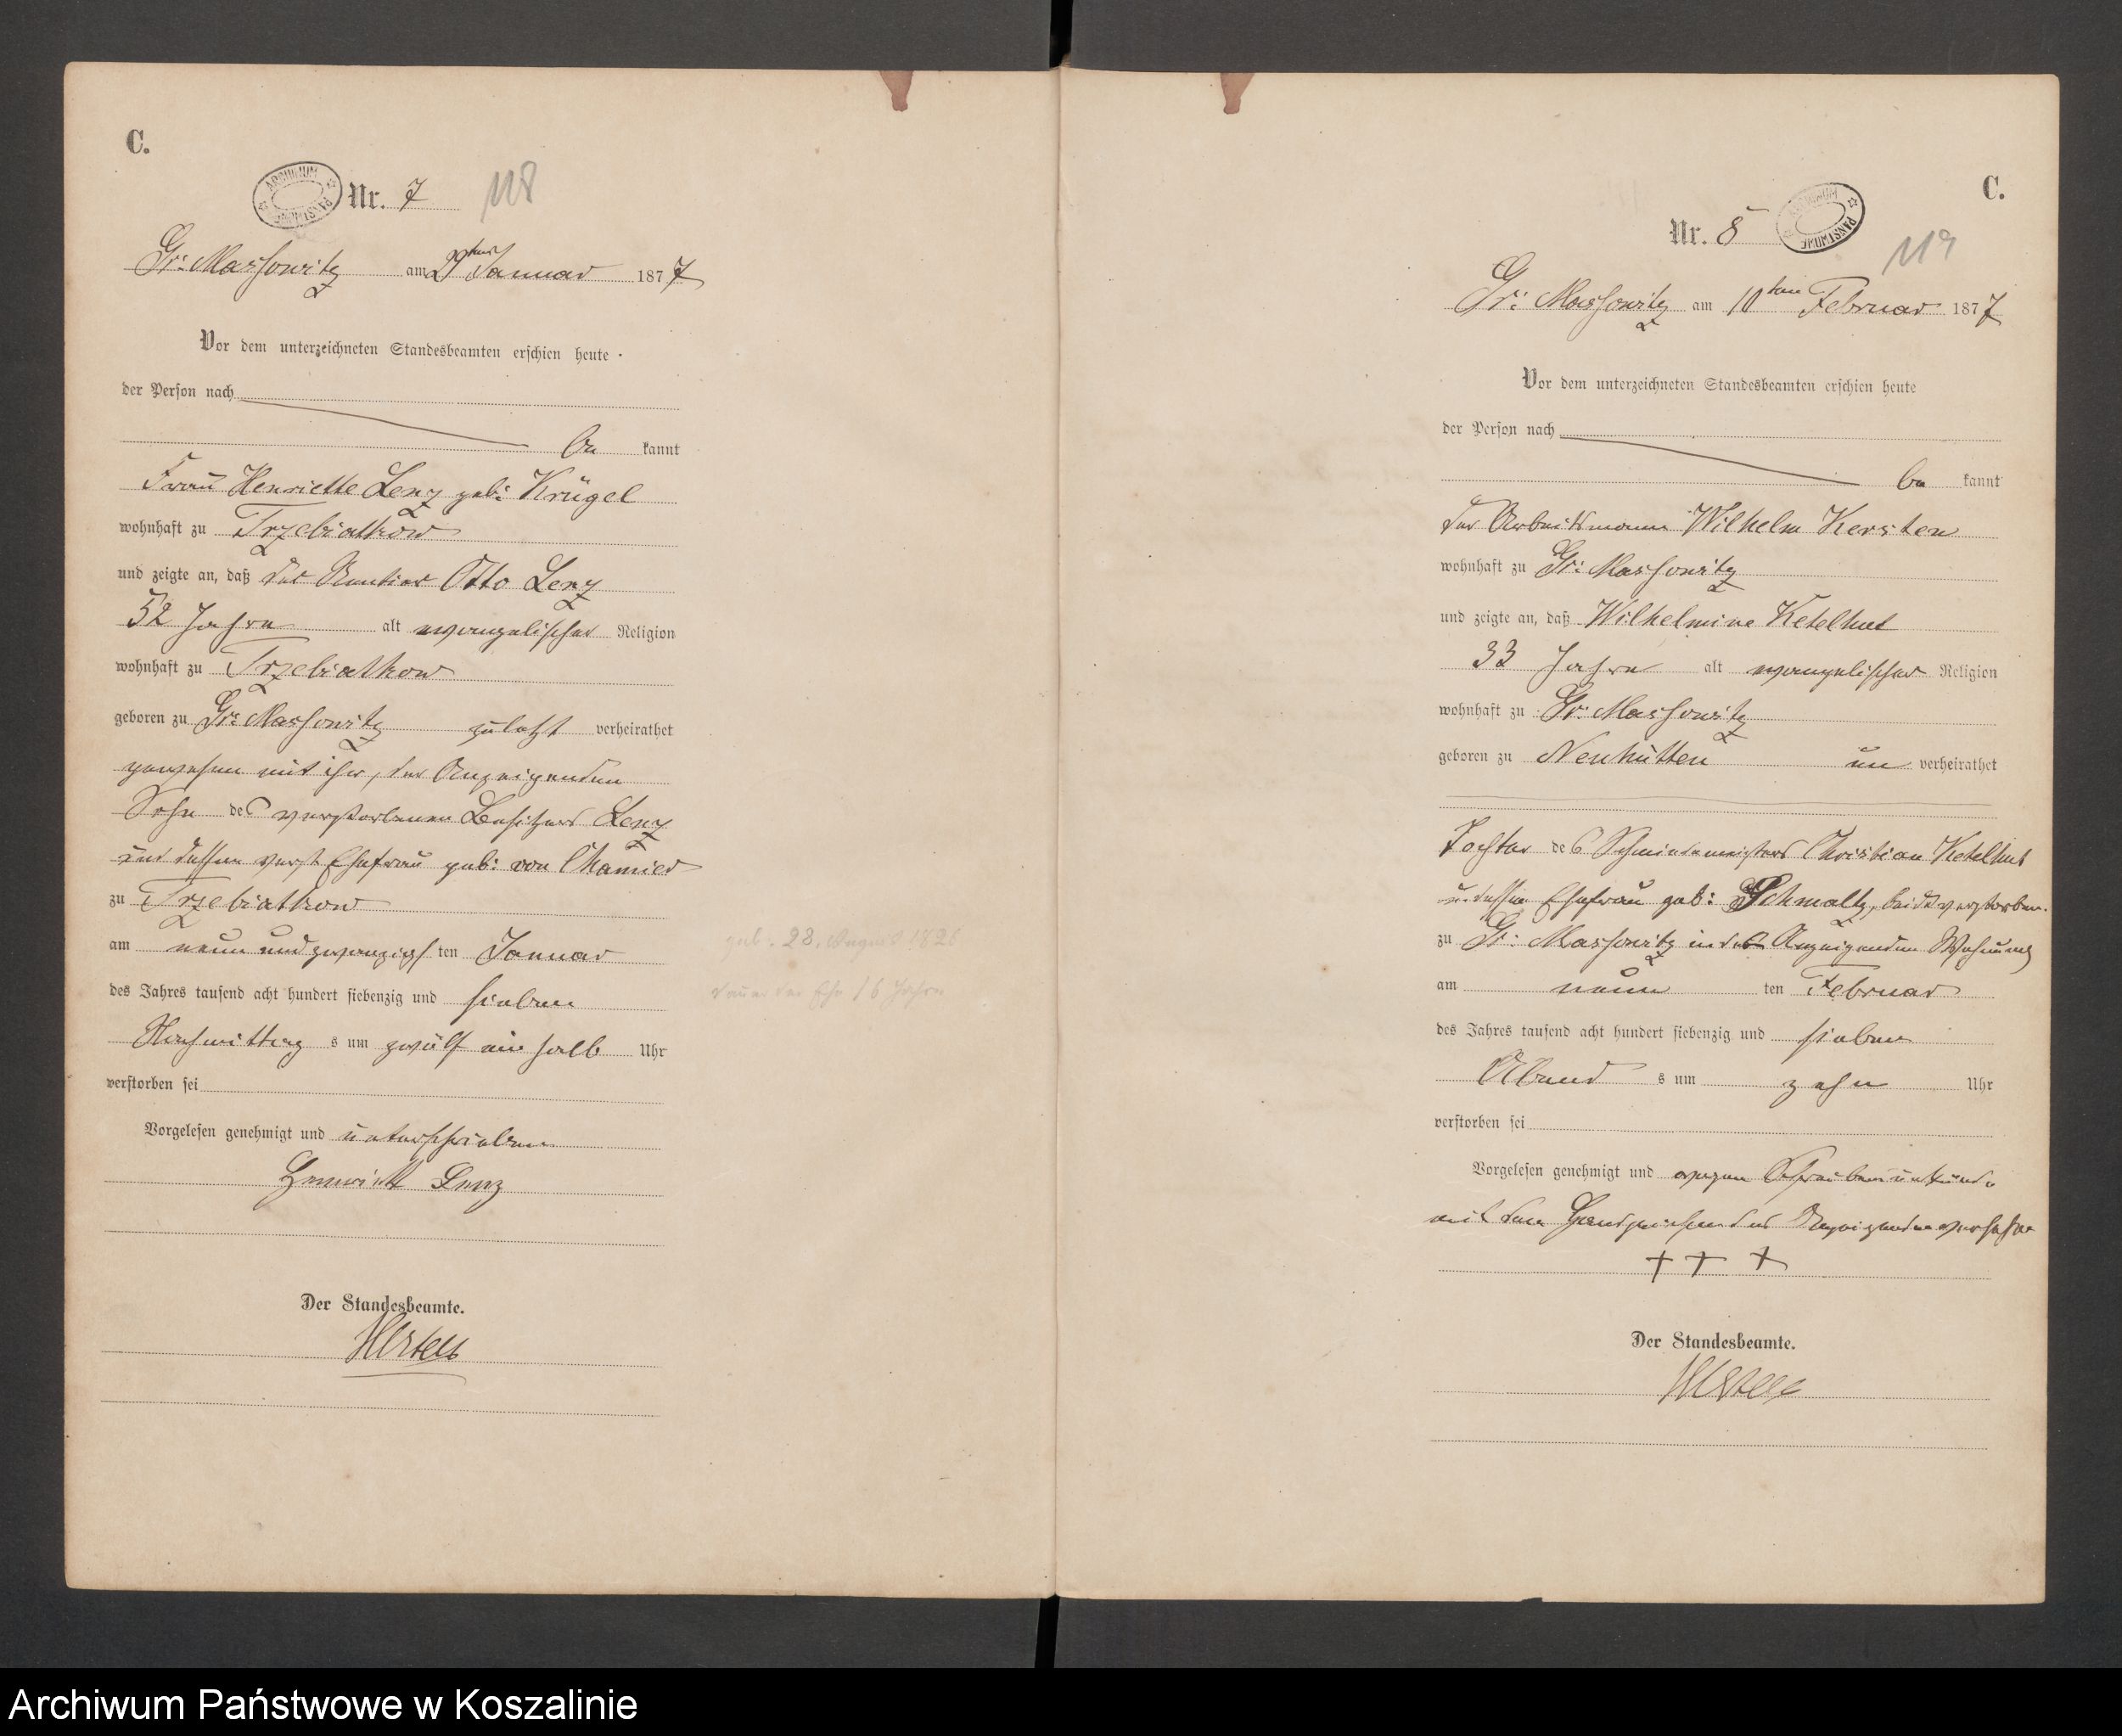 C.
ARCHIWUM PAŃSTWOWE
Nr. 7 118
Gr: Massowitz am Januar 1877
Vor dem unterzeichneten Standesbeamten erschien heute
der Person nach
be kannt
Frau Henriette Lenz geb: Krügel
wohnhaft zu Trzebiatkow
und zeigte an, daß der Rentier Otto Lenz
52 Jahre alt evangelischer Religion
wohnhaft zu Trzebiatkow
geboren zu Gr: Massowitz zuletzt verheirathet
gewesen mit ihr, der Anzeigenden
Sohn des verstorbenen Besitzers Lenz
und dessen verst Ehefrau geb: von
zu Trzebiatkow
am neun und zwanzigs ten Januar
des Jahres tausend acht hundert siebenzig und sieben
Nachmittag s um zwölf ein halb Uhr
verstorben sei
Vorgelesen genehmigt und unterschrieben
Henriette Lenz
Der Standesbeamte.
geb. 28. August
Dauer der Ehe 16 Jahre
C.
Nr. 8
ARCHIWUM PAŃSTWOWE
119
Gr: Massowitz am 10ten Februar 1877
Vor dem unterzeichneten Standesbeamten erschien heute
der Person nach
be kannt
der Arbeitsmann Wilhelm Kersten
wohnhaft zu Gr: Massowitz
und zeigte an, daß Wilhelmine Ketelhut
33 Jahre alt evangelischer Religion
wohnhaft zu Gr: Massowitz
geboren zu Neuhütten un verheirathet
Tochter des Schmiedemeisters Christian Ketelhut
u. dessen Ehefrau geb: Schmaltz, beide verstorben.
zu Gr: Massowitz in des Anzeigenden Wohnung
am neun ten Februar
des Jahres tausend acht hundert siebenzig und sieben
Abend s um zehn Uhr
verstorben sei
Vorgelesen genehmigt und wegen Schreibensunkunde
mit dem Handzeichen des Anzeigenden versehen
+ + +
Der Standesbeamte.
Archiwum Państwowe w Koszalinie